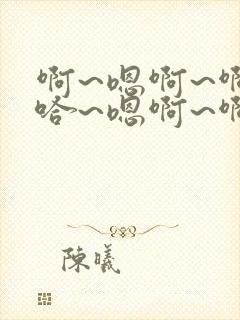 啊~嗯啊~啊
哈~嗯啊~啊
陳曦